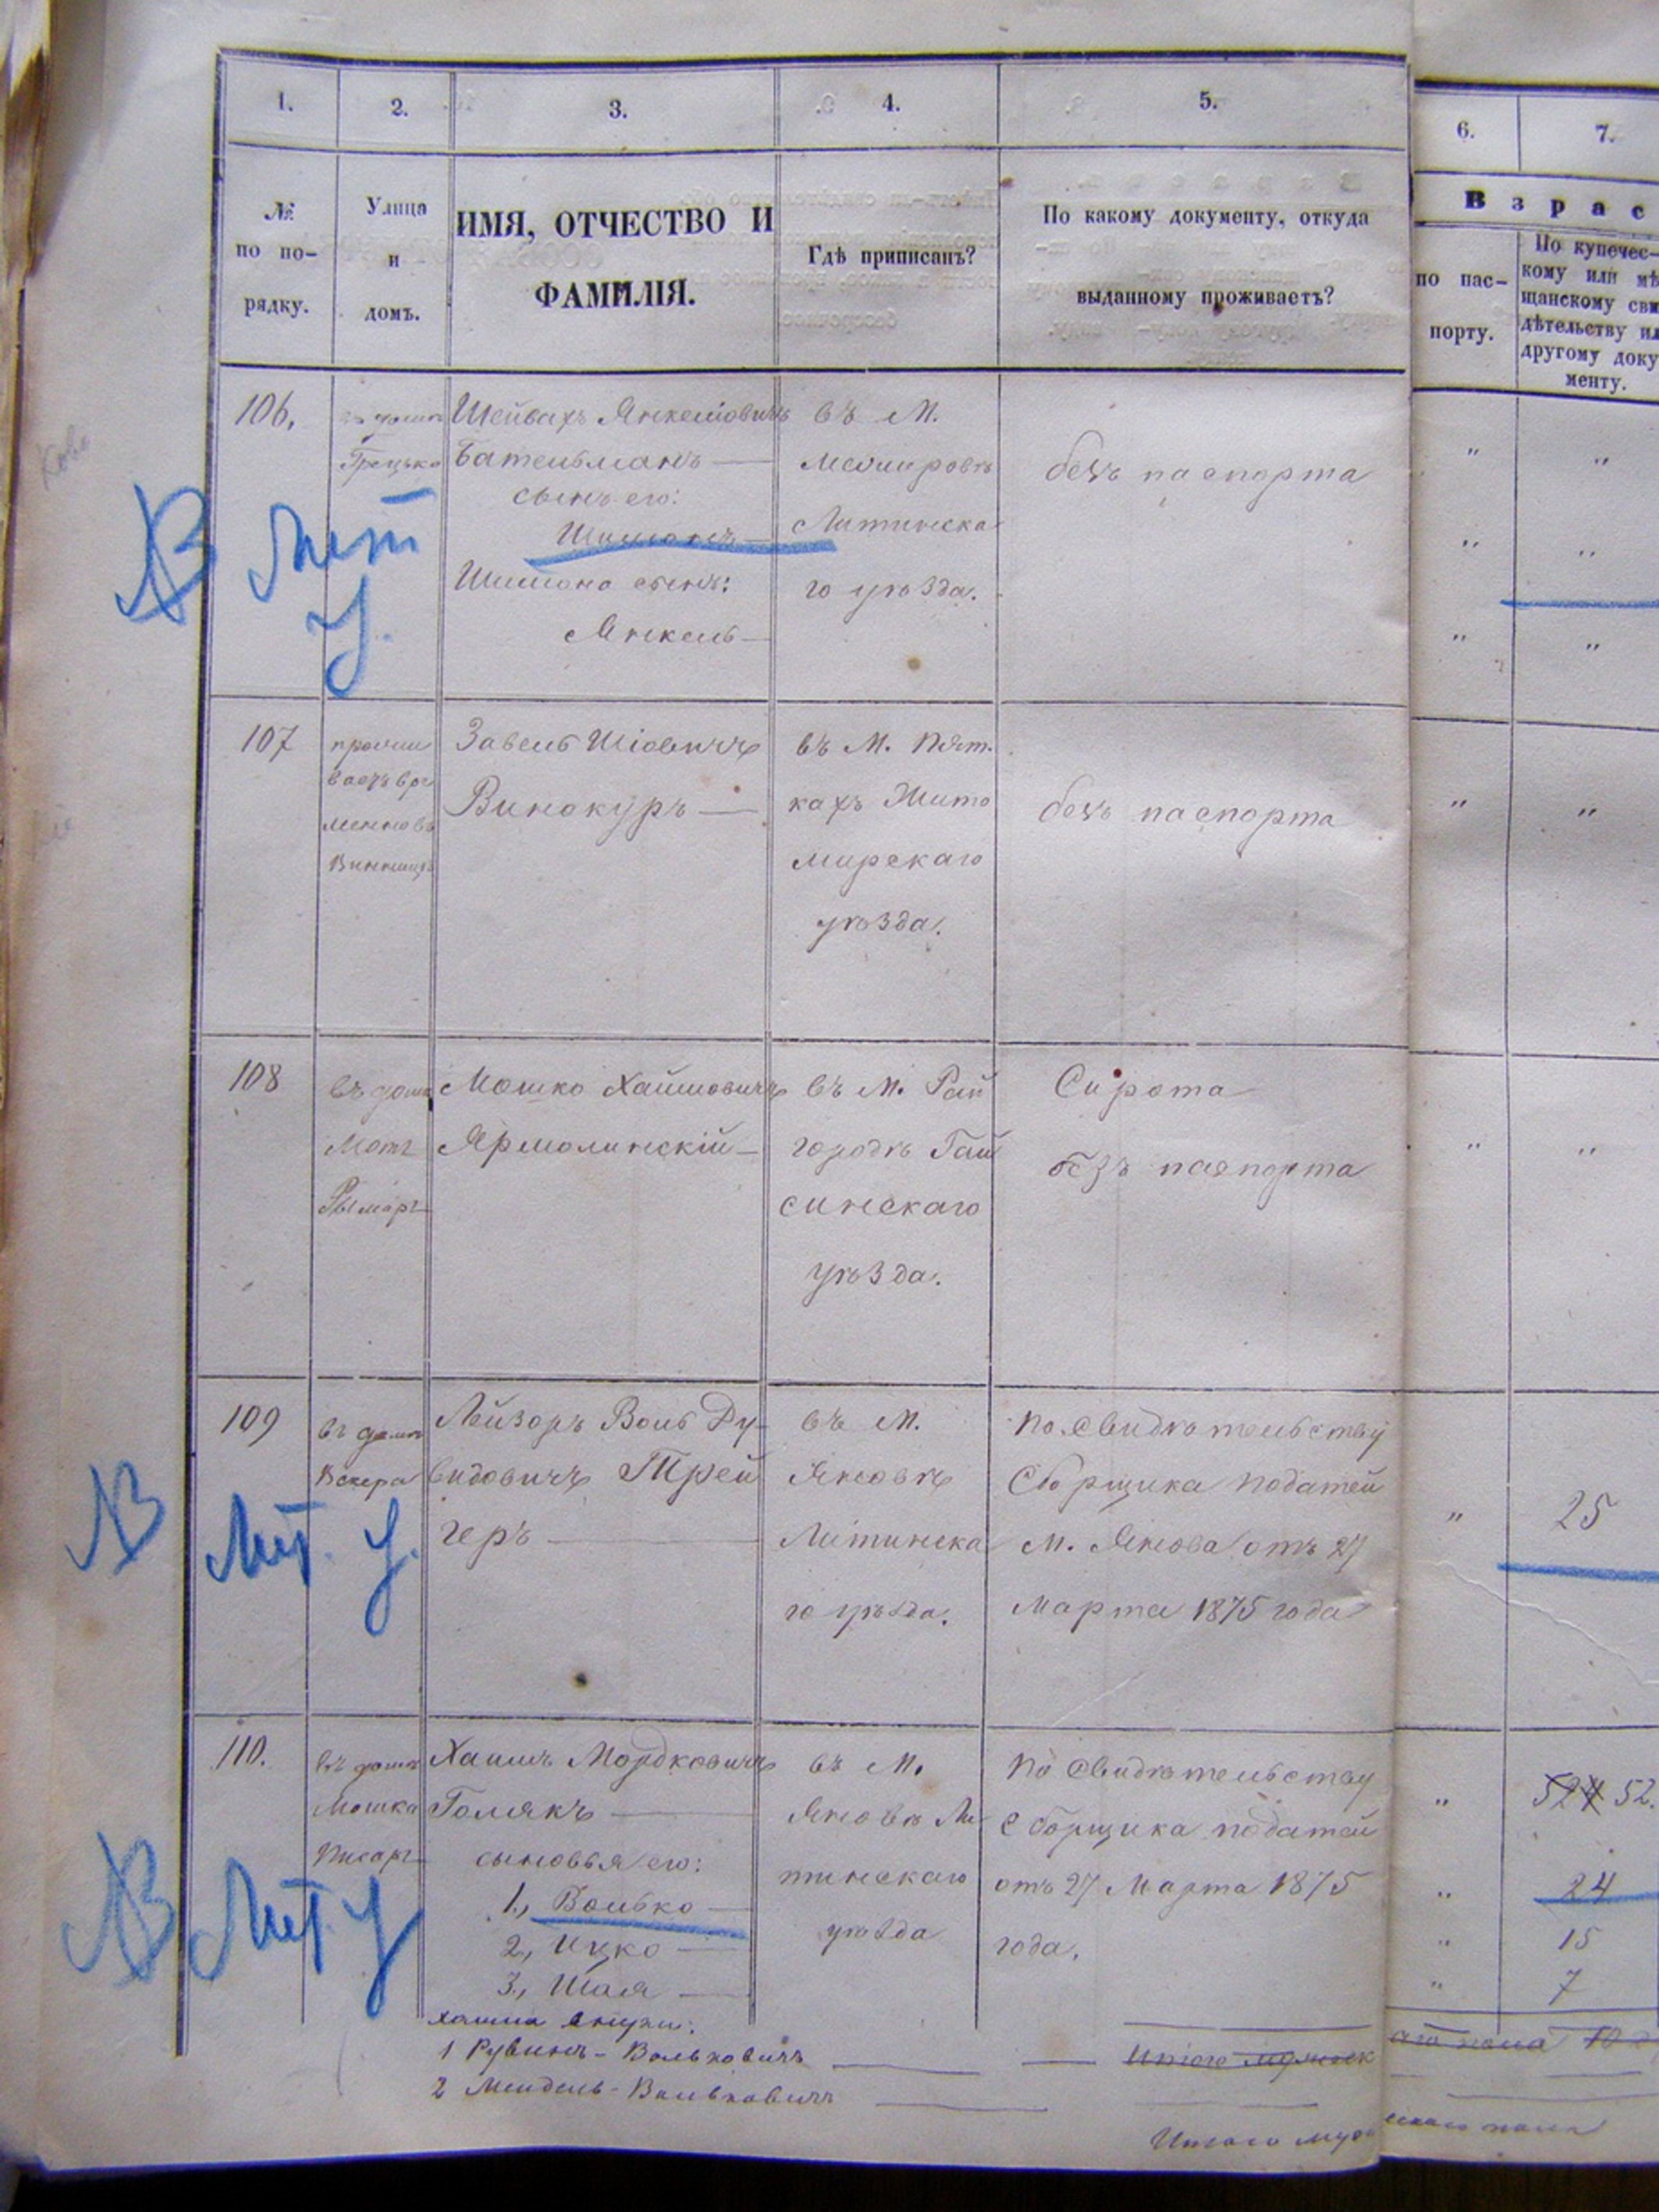 1.
2.
3.
4.
5.
6.
7.
Взрас
№
по по-
рядку.
Улица
и
домъ.
ИМЯ, ОТЧЕСТВО И
ФАМИЛІЯ.
Гдѣ приписанъ?
По какому документу, откуда
выданному проживаетъ?
по пас-
порту.
По купечес-
кому или мѣ
щанскому сви
дѣтельству ил
другому доку
менту.
106.
въ домѣ
Грецько
Шейвахъ Янкелiовичъ
Бательманъ —
сынъ его:
Шимонъ —
Шимона сынъ:
Янкель —
въ М.
Межировѣ
Литинска
го уѣзда.
безъ паспорта
" "
" "
" "
В Лит
У.
107
прожи
ваетъ вре
менно въ
Винницѣ
Завель Шіовичъ
Винокуръ —
въ М. Пят.
кахъ Жито
мирскаго
уѣзда.
безъ паспорта
" "
108
въ домѣ
Мот
Рымар
Мошко Хаймовичъ
Ярмолинскій —
въ М. Рай
городѣ Гай
синскаго
уѣзда.
Сирота
безъ паспорта
" "
109
въ домѣ
Вскера
Лейзоръ Воль Ду-
видовичъ Трей
геръ —
въ М.
Яновѣ
Литинска
го уѣзда.
по свидѣтельству
Сборщика податей
М. Янова отъ 27
Марта 1875 года
" 25
В Лит. У.
110.
въ домѣ
Мошка
Писар
Хаимъ Мордковичъ
Голякъ —
сыновья его:
1., Волько —
2., Ицко —
3., Шая —
въ М.
Яновѣ Ли
тинскаго
уѣзда
по свидѣтельству
Сборщика податей
отъ 27 Марта 1875
года.
" 52.
" 24
" 15
" 7
В Лит У
Хаима внуки:
1 Рувинъ - Вольковичъ
2 Мендель - Вольковичъ
Итого мужеск
аго пола
Итого муж
ескаго пола